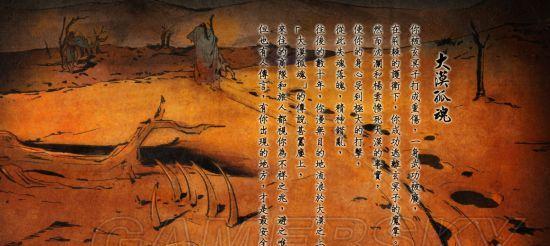 大漠孤魂
你被玄冥子打成重傷，一身武功被廢，
在瓜賴的護衛下，你成功逃離玄冥子的魔掌。
然而沈瀾和楊雲慘死大漠的事實，
使你的身心受到極大的打擊，
從此失魂落魄，精神錯亂。
往後的數十年，你漫無目的地流浪於大漠之
「大漠孤魂」的傳說甚囂塵上，
來往的商隊和旅人都視你為不祥之兆，避之唯
但也有人傳言，有你出現的地方，才是最安全
GAMERSKY